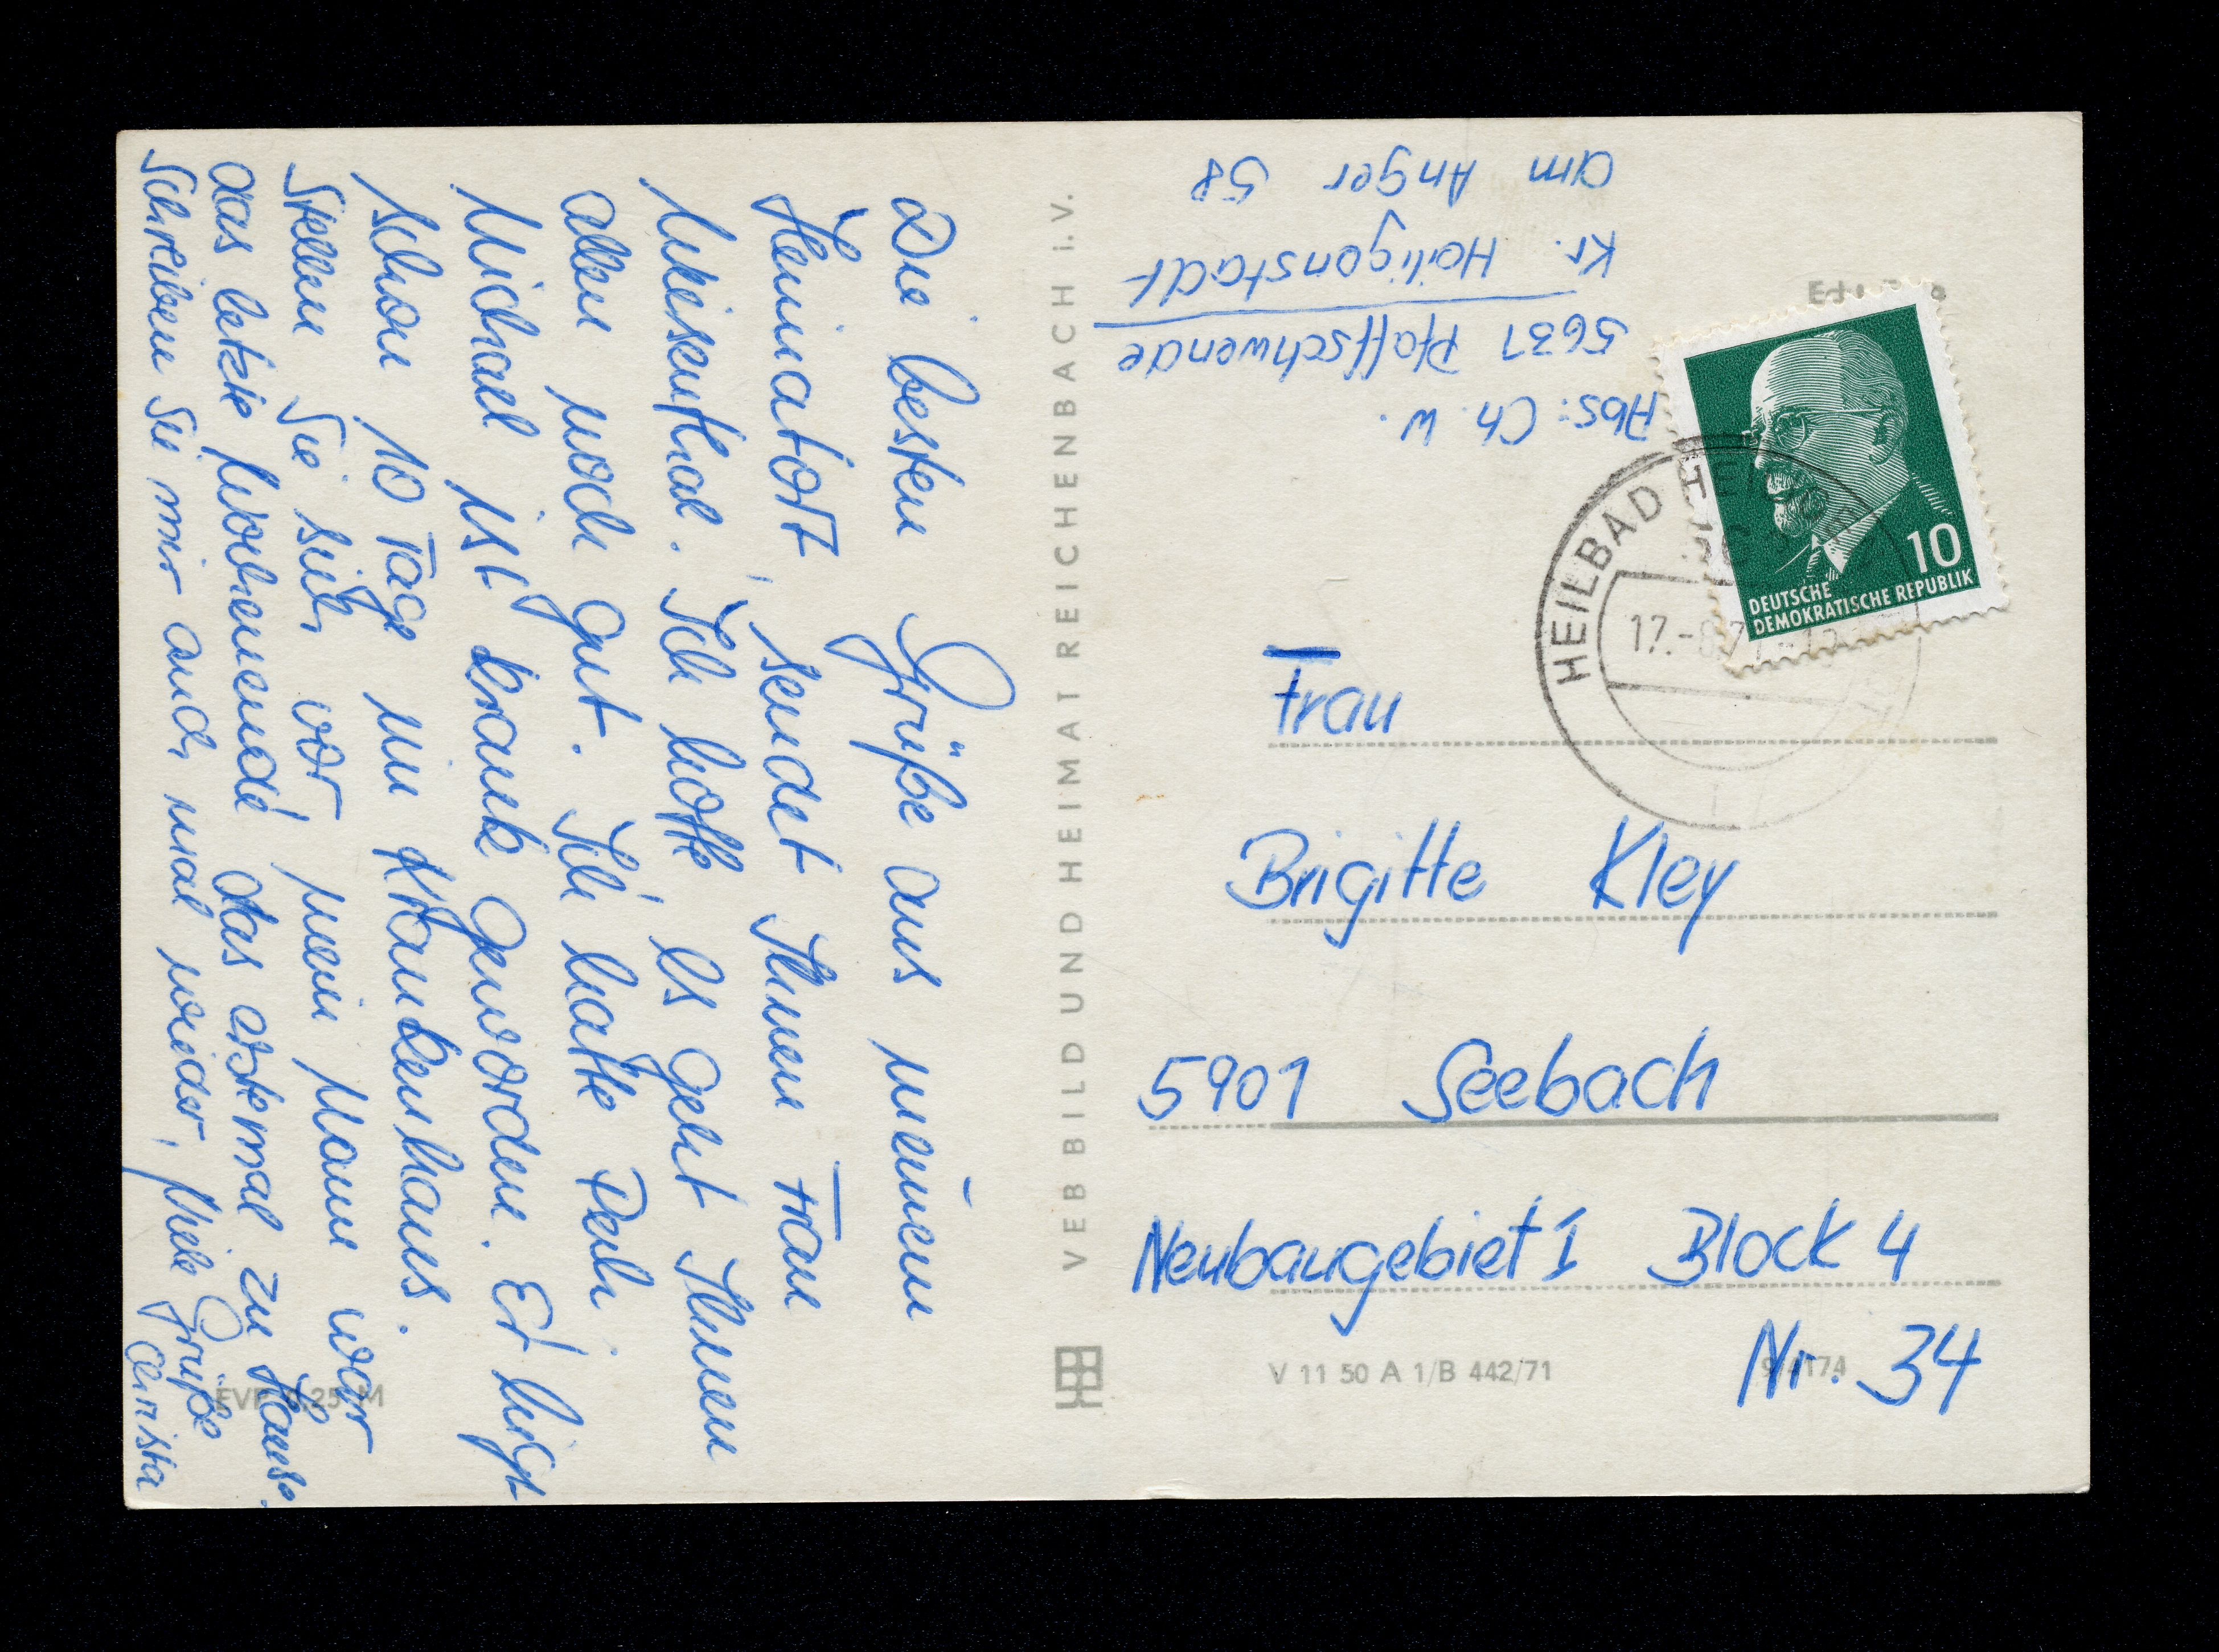 Die besten Grüße aus meinem
Heimatort, sendet Ihnen Frau
Weisenthal. Ich hoffe, es geht Ihnen
allen noch gut. Ich hatte Pech
Michael ist krank geworden. Er liegt
schon 10 Tage im Krankenhaus.
Stellen Sie sich vor mein Mann war
das letzte Wochenende das erstemal zu Hause.
Schreiben Sie mir auch mal wieder, Viele Grüße
Christa
EVP 0,25 M
VEB BILD UND HEIMAT REICHENBACH i.V.
Abs: Ch. W.
5631 Pfaffschwende
Kr. Heiligenstadt
Am Anger 58
10
DEUTSCHE
DEMOKRATISCHE REPUBLIK
HEILBAD
17.-8
Frau
Brigitte Kley
5901 Seebach
Neubaugebiet 1 Block 4
Nr. 34
V 11 50 A 1/B 442/71